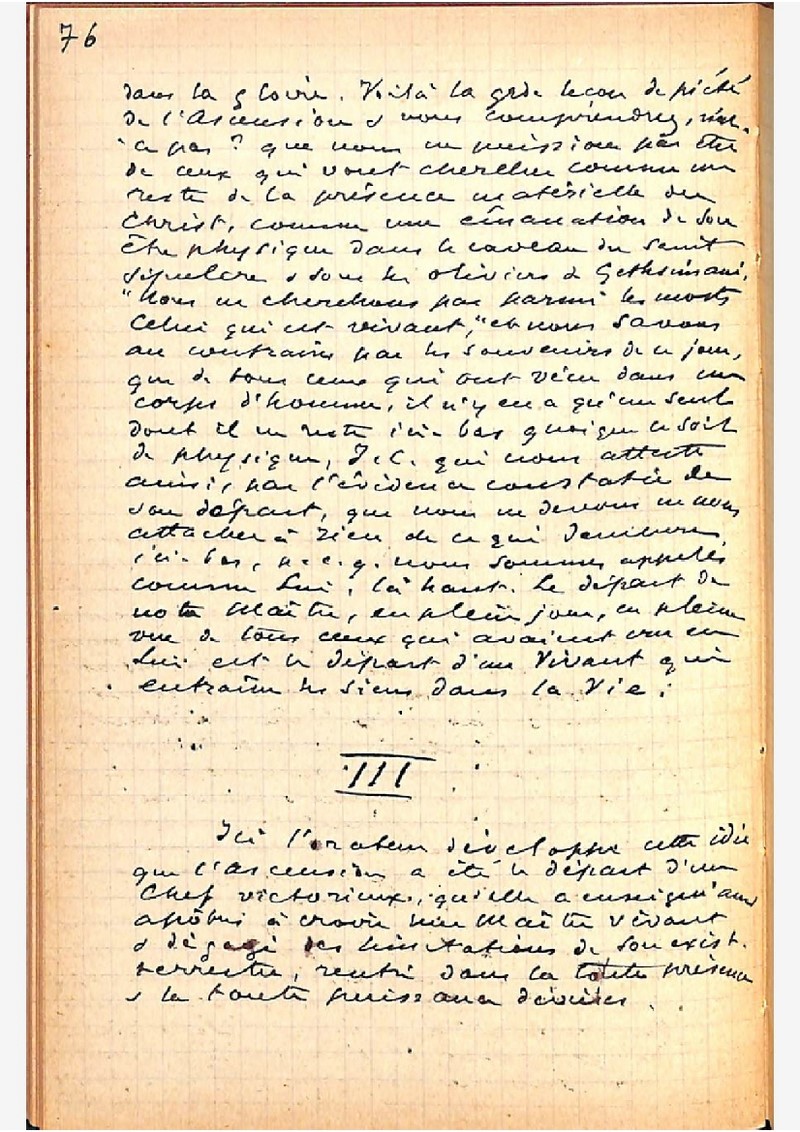 76
dans la gloire. Voilà la grde leçon de piété
de l'Ascension & vous comprendrez, n'est-
ce pas ? que nous ne puissions pas être
de ceux qui vont chercher comme un
reste de la présence matérielle du
Christ, comme une émanation de son
être physique dans le caveau du Saint
Sépulcre & sous les oliviers de Gethsémani.
"Nous ne cherchons pas parmi les morts
Celui qui est vivant," et nous savons
au contraire par les souvenirs de ce jour,
que de tous ceux qui ont vécu dans un
corps d'homme, il n'y en a qu'un seul
dont il ne reste ici-bas quoique ce soit
de physique, J.C. qui nous atteste
ainsi, par l'évidence constatée de
son départ, que nous ne devons ne nous
attacher à rien de ce qui demeure
ici-bas, p.c.q. nous sommes appelés
comme Lui, là haut. Le départ de
notre Maître, en plein jour, en pleine
vue de tous ceux qui avaient cru en
Lui est le départ d'un Vivant qui
entraîne les siens dans la Vie.
III
Ici l'orateur développe cette idée
que l'Ascension a été le départ d'un
Chef victorieux, qu'elle a enseigné aux
apôtres à croire un Maître vivant
& dégagé des limitations de son exist.
terrestre, rentré dans la toute présence
& la toute puissance divines.